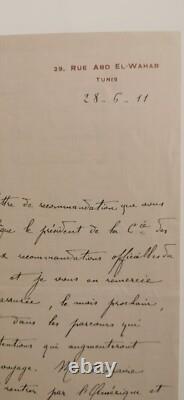 29, RUE ABD EL-WAHAB
TUNIS
28-6-11
ttre de recommandation que vous
que le président de la Cie des
recommandations officielles du
et je vous en remercie
le mois prochain,
dans les parcours que
tentions qui augmenteront
voyage.
rentrer par l'Amérique et